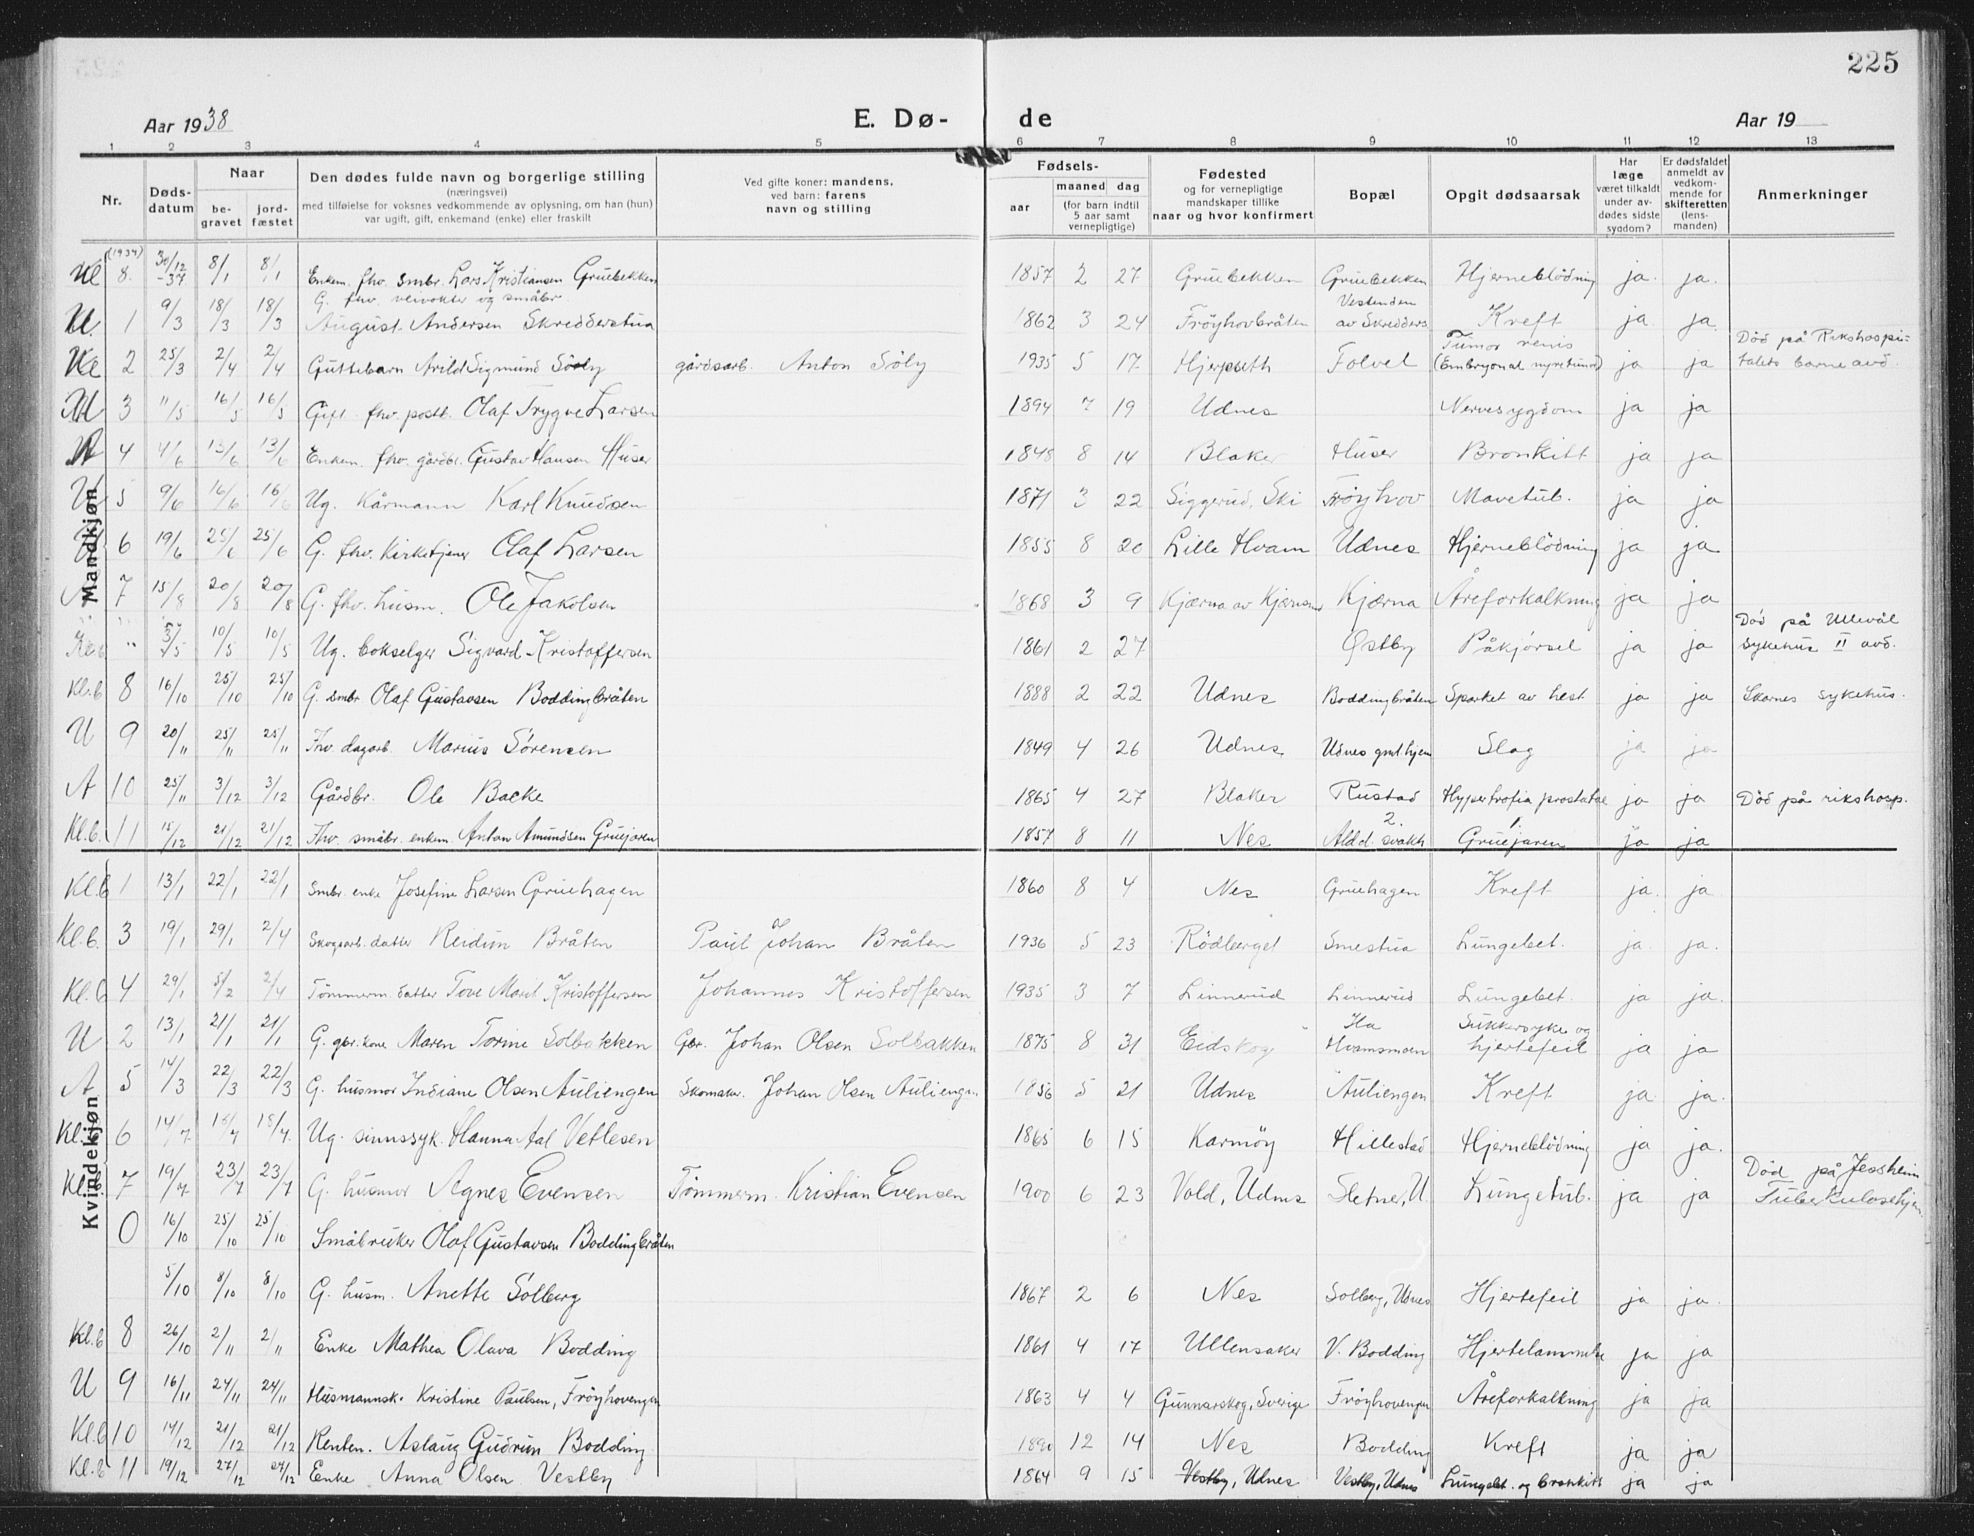 225
Aar 1938 E. Dø- de Aar 19
1 2 3 4 5 6 7 8 9 10 11 12 13
Nr. Døds-datum Naar be-gravet jord-fæstet Den dødes fulde navn og borgerlige stilling (næringsvei) med tilføielse for voksnes vedkommende av oplysning, om han (hun) var ugift, gift, enkemand (enke) eller fraskilt Ved gifte koner: mandens, ved barn: farens navn og stilling Fødsels- aar maaned dag (for barn indtil 5 aar samt vernepligtige) Fødested og for vernepligtige mandskaper tillike naar og hvor konfirmert Bopæl Opgit dødsaarsak Har læge været tilkaldt under av-dødes sidste sygdom? Er dødsfaldet anmeldt av vedkom-mende for skifteretten (lens-manden) Anmerkninger
Mandkjøn
8. 30/12 -37 8/1 8/1 Enkem. fhv. smbr. Lars Kristiansen Gruebekken 1857 2 27 Gruebekken Gruebekken Hjerneblödning ja. ja.
U. 1 9/3 18/3 18/3 G. fhv. veivokter og småbr. August Andersen Skredderstua 1862 3 24 Fröyhovbråten Vestenden av Skredders. Kreft ja ja.
2 25/3 2/4 2/4 Guttebarn Arild Sigmund Söly gårdsarb. Anton Söly 1935 5 17 Hjerpseth Folvel Tumor renis (Embryonal ja ja Död på Rikshospi-talets barneavd.
3 11/5 16/5 16/5 Gift. fhv. postb. Olaf Trygve Larsen 1894 7 19 Udnes Nervesygdom ja ja
4 4/6 13/6 13/6 Enkem. fhv. gårdbr. Gustav Hansen Huser 1848 8 14 Blaker Huser Bronkitt ja ja
U 5 9/6 16/6 16/6 Ug. Kårmann Karl Knudsen 1871 3 22 Siggerud, Ski Fröyhov Mavetub. ja ja
6 19/6 25/6 25/6 G. fhv. Kirketjener Olaf Larsen 1855 8 20 Lille Hvam Udnes Hjerneblödning ja ja
7 15/8 20/8 20/8 G. fhv. husm. Ole Jakobsen 1868 3 9 Kjærna av Kjærna Åreforkalkning ja ja
Kl.b " 10/5 10/5 Ug. bokselger Sigvard Kristoffersen 1861 2 27 Østby Påkjørsel ja ja Död på Ullevål sykehus II avd.
Kl.b 8 16/10 25/10 25/10 G. smbr Olaf Gustavsen Boddingbråten 1888 2 22 Udnes Boddingbråten Sparket av hest ja ja Skarnes sykehus.
U 9 20/11 25/11 25/11 Fhv. dagarb. Marius Sörensen 1849 4 26 Udnes Udnes gmlhjem Slag ja ja
A 10 25/11 3/12 3/12 Gårdbr. Ole Backe 1865 4 27 Blaker Rustad Hypertrofia prostatae ja ja Död på rikshosp.
Kl.b. 11 15/12 21/12 21/12 Fhv. småbr. enkem. Anton Amundsen Gruejaren 1857 8 11 Nes 2. Aldd. svakh 1. Gruejaren ja ja
Kvindekjøn
Kl.b 1 13/1 22/1 22/1 Smbr. enke Josefine Larsen Gruehagen 1860 8 4 Nes Gruehagen Kreft ja. ja
Kl.b. 3 19/1 29/1 2/4 Skogsarb. datter Reidun Bråten Paul Johan Bråten 1936 5 23 Rödberget Smestua Lungebet. ja. ja.
Kl.b 4 29/1 5/2 2/4 Tömmerm. datter Tove Marit Kristoffersen Johannes Kristoffersen 1935 3 7 Linnerud Linnerud Lungebet. ja ja.
U 2 13/1 21/1 21/1 G. gbr. kone Maren Torine Solbakken Gbr. Johan Olsen Solbakken 1875 8 31 Eidskog Hvamsmoen Sukkersyke og hjertefeil ja ja
A 5 14/3 22/3 22/3 G. husmor Indiane Olsen Auliengen Skomaker. Johan Olsen Auliengen 1856 5 21 Udnes Auliengen Kreft ja ja.
Kl.b 6 14/7 18/7 18/7. Ug. sinnssyk. Hanna Aal Vetlesen 1865 6 15 Karmöy Hillestad Hjerneblödning ja ja.
Kl.b 7 19/7 23/7 23/7 G. husmor Agnes Evensen Tömmerm. Kristian Evensen 1900 6 23 Vold, Udnes Sletner, U. Lungetub. ja ja Död på Jessheim Tuberkulosehjem
0 16/10 25/10 25/10 Småbruker Olaf Gustavsen Boddingbråten
5/10 8/10 8/10 G. husm. Anette Solberg 1867 2 6 Nes Solberg, Udnes Hjertefeil ja ja.
Kl.b 8 26/10 2/11 2/11 Enke Mathea Olava Bodding 1861 4 17 Ullensaker V. Bodding Hjertelammelse ja ja
U 9 16/11 24/11 24/11 Husmannsk. Kristine Paulsen, Fröyhovengen 1863 4 4 Gunnarskog, Sverige Fröyhovengen Åreforkalkning ja ja
Kl.b 10 14/12 21/12 21/12 Renten. Aslaug Gudrun Bodding 1890 12 14 Nes Bodding Kreft ja ja
Kl.b 11 19/12 27/12 27/12 Enke Anna Olsen Vestby 1864 9 15 Vestby, Udnes Vestby, Udnes Lungebet. og bronkitt ja ja